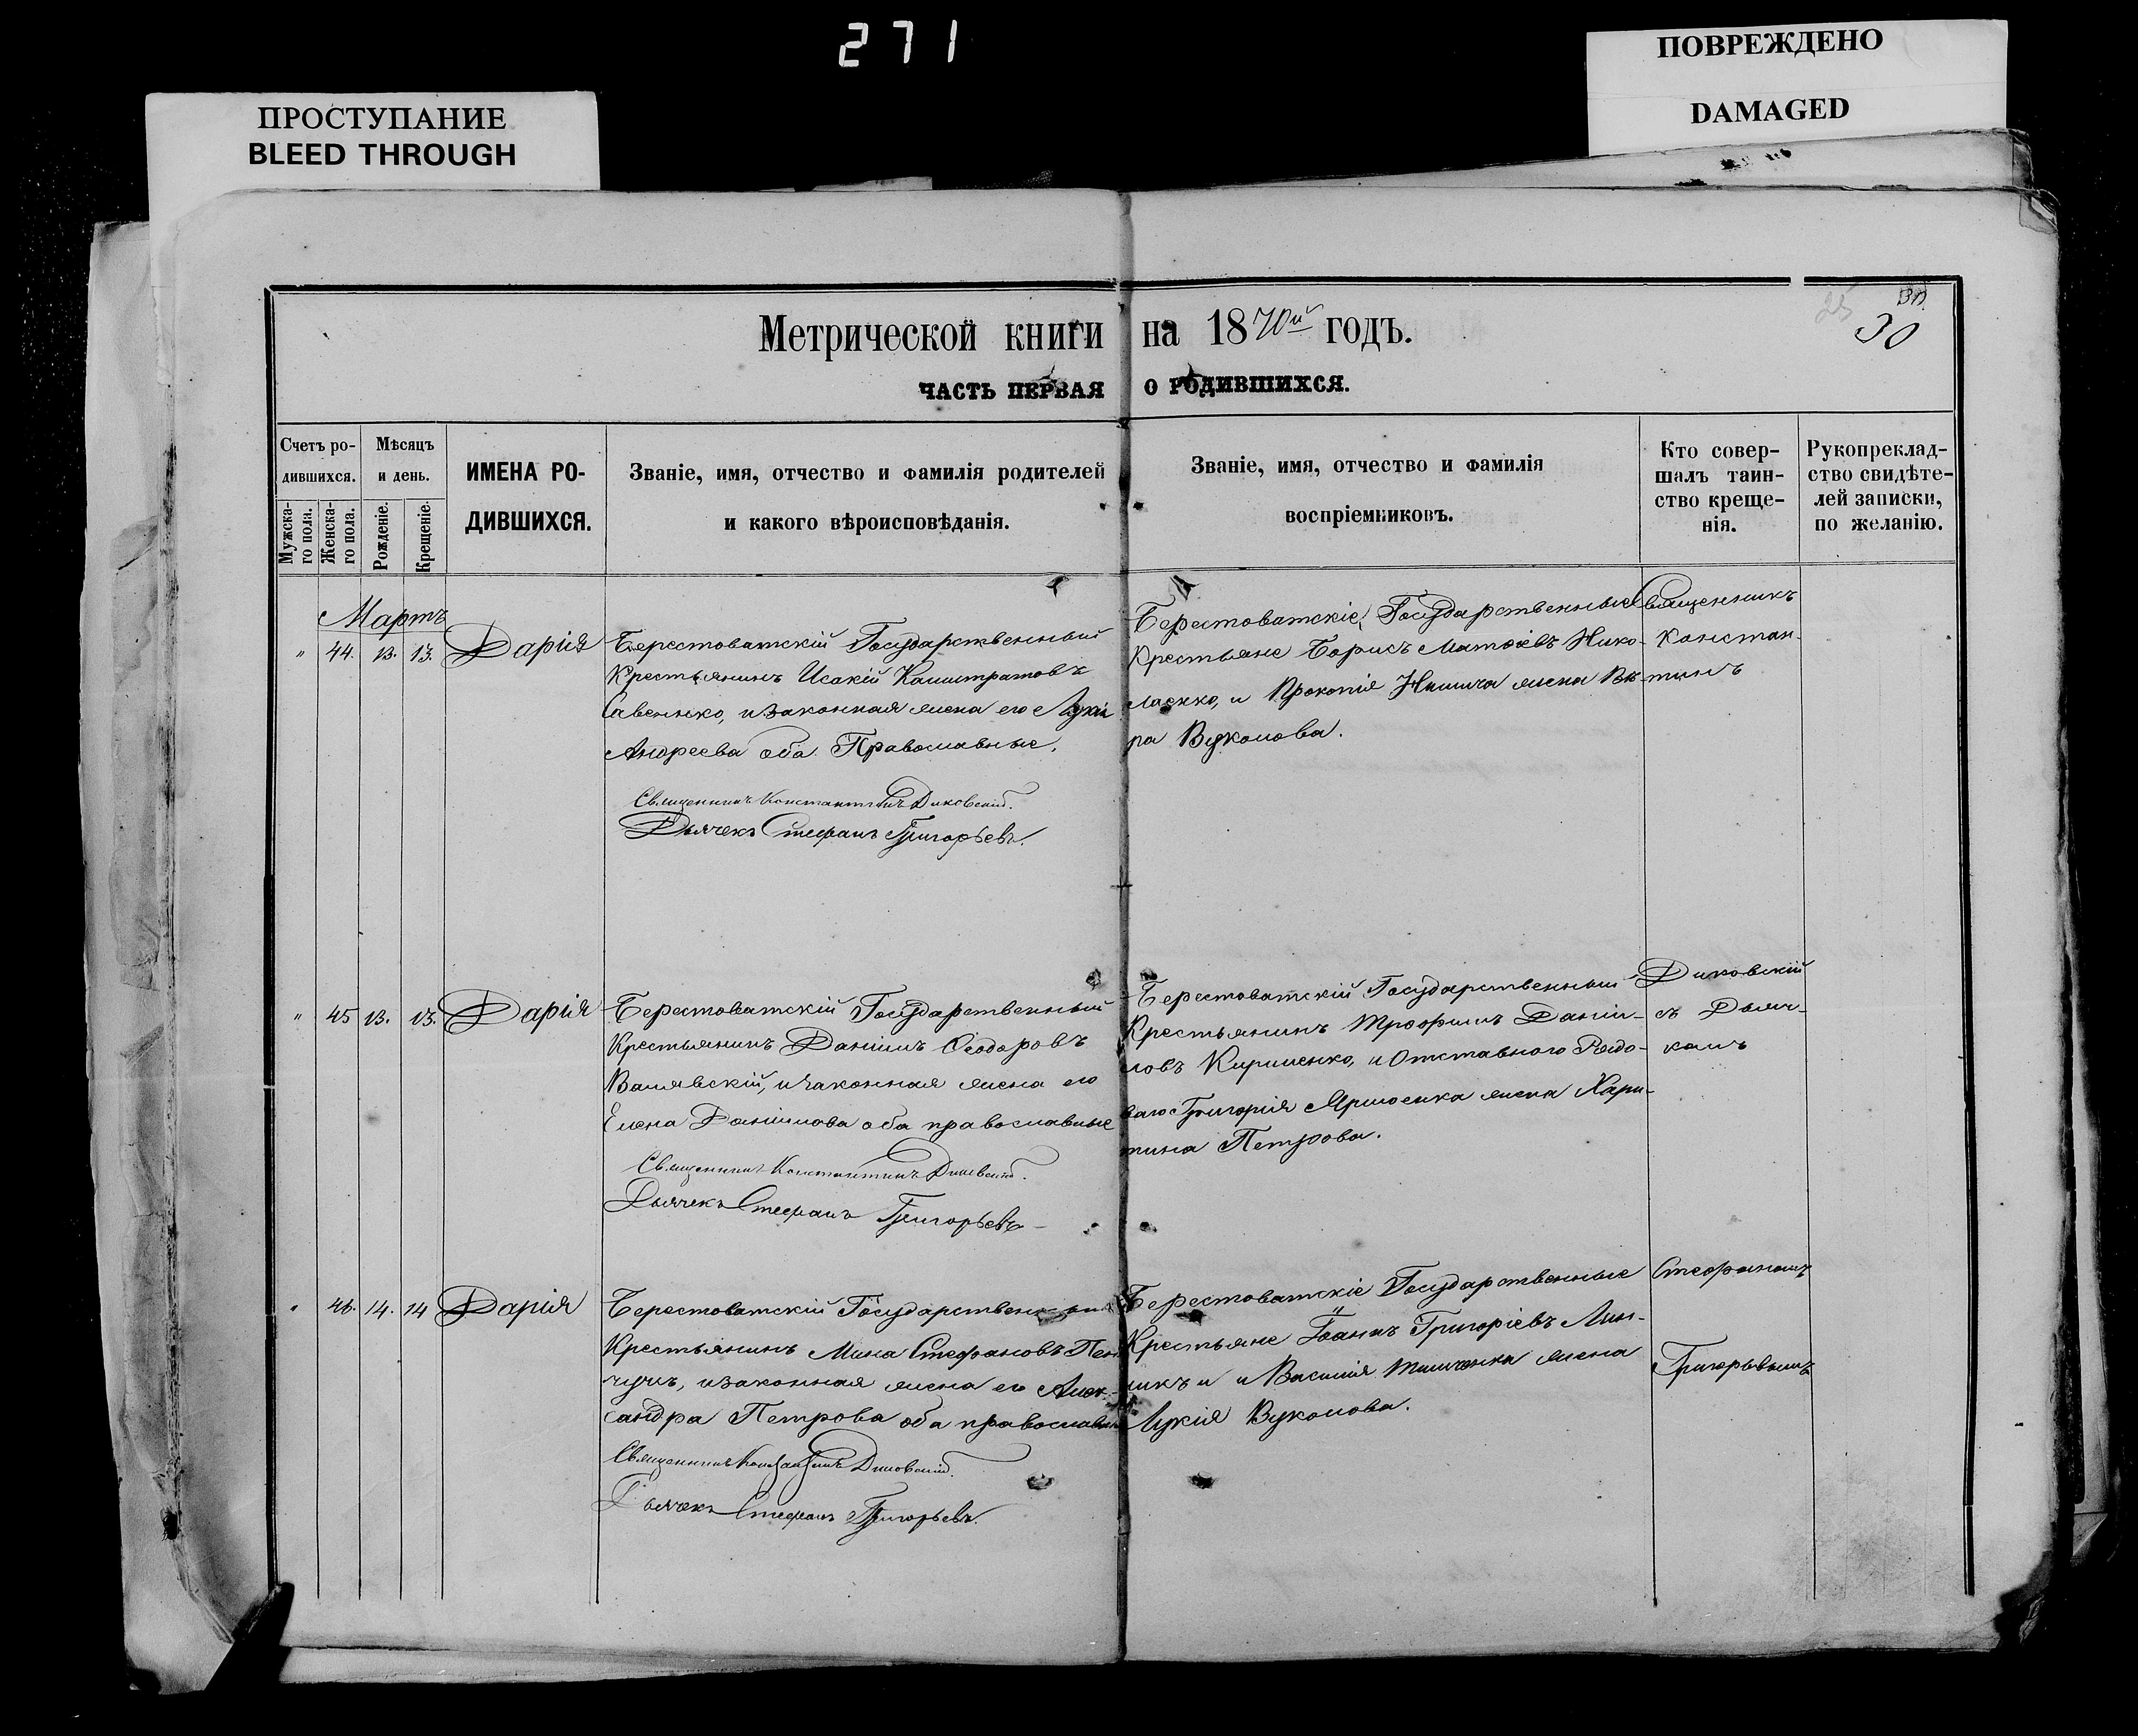 271
ПОВРЕЖДЕНО
DAMAGED
ПРОСТУПАНИЕ
BLEED THROUGH
30
Метрической книги на 1870й годъ.
ЧАСТЬ ПЕРВАЯ О РОДИВШИХСЯ.
Счетъ ро-
дившихся.
Мужска-
го пола.
Женска-
го пола.
Мѣсяцъ
и день.
Рожденіе.
Крещеніе.
ИМЕНА РО-
ДИВШИХСЯ.
Званіе, имя, отчество и фамилія родителей
и какого вѣроисповѣданія.
Званіе, имя, отчество и фамилія
воспріемниковъ.
Кто совер-
шалъ таин-
ство креще-
нія.
Рукоприклад-
ство свидѣте-
лей записки,
по желанію.
Мартъ
" 44. 13. 13. Дарія
Берестоватскій Государственный
Крестьянинъ Исакій Калистратовъ
Савенько, и законная жена его Лукія
Андреева оба Православные.
Священникъ Константинъ Диковскій.
Дьячекъ Стефанъ Григорьевъ.
Берестоватскіе Государственные
Крестьяне Борисъ Матѳіевъ Нико-
лаенко, и Прокопія жена Вѣ-
ра Вуколова.
Священникъ
Констан-
тинъ
" 45 13. 13. Дарія
Берестоватскій Государственный
Крестьянинъ Даніилъ Ѳеодоровъ
Валявскій, и законная жена его
Елена Даніилова оба православные
Священникъ Константинъ Диковскій.
Дьячекъ Стефанъ Григорьевъ
Берестоватскій Государственный
Крестьянинъ Трофимъ Даніи-
ловъ Кириленко, и Отставного Рядо-
ваго Григорія Ярмоленка жена Хари-
тина Петрова.
Диковскій
съ Дьяч-
комъ
" 46. 14. 14 Дарія
Берестоватскій Государственный
Крестьянинъ Мина Стефановъ
и законная жена его Алек-
сандра Петрова оба православные
Священникъ Константинъ Диковскій.
Дьячекъ Стефанъ Григорьевъ.
Берестоватскіе Государственные
Крестьяне Іоаннъ Григоріевъ Лин-
никъ и и Василія Тимченка жена
Лукія Вуколова.
Стефаномъ
Григорьвымъ